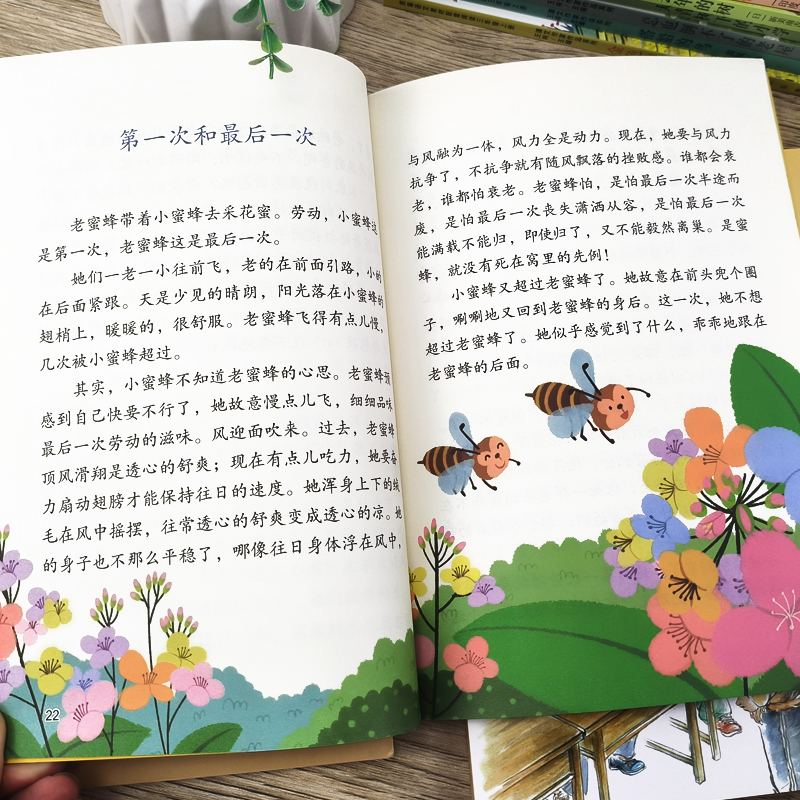 第一次和最后一次
老蜜蜂带着小蜜蜂去采花蜜。劳动,小蜜蜂这
是第一次,老蜜蜂这是最后一次。
她们一老一小往前飞,老的在前面引路,小的
在后面紧跟。天是少见的晴朗,阳光落在小蜜蜂的
翅梢上,暖暖的,很舒服。老蜜蜂飞得有点儿慢,
几次被小蜜蜂超过。
其实,小蜜蜂不知道老蜜蜂的心思。老蜜蜂预
感到自己快要不行了,她故意慢点儿飞,细细品味
最后一次劳动的滋味。风迎面吹来。过去,老蜜蜂
顶风滑翔是透心的舒爽;现在有点儿吃力,她要奋
力扇动翅膀才能保持往日的速度。她浑身上下的绒
毛在风中摇摆,往常透心的舒爽变成透心的凉。她
的身子也不那么平稳了,哪像往日身体浮在风中,
22
与风融为一体,风力全是动力。现在,她要与风力
抗争了,不抗争就有随风飘落的挫败感。谁都会衰
老,谁都怕衰老。老蜜蜂怕,是怕最后一次半途而
废,是怕最后一次丧失潇洒从容,是怕最后一次
能满载不能归,即使归了,又不能毅然离巢。是蜜
蜂,就没有死在窝里的先例!
小蜜蜂又超过老蜜蜂了。她故意在前头兜个圈
子,唰唰地又回到老蜜蜂的身后。这一次,她不想
超过老蜜蜂了。她似乎感觉到了什么,乖乖地跟在
老蜜蜂的后面。